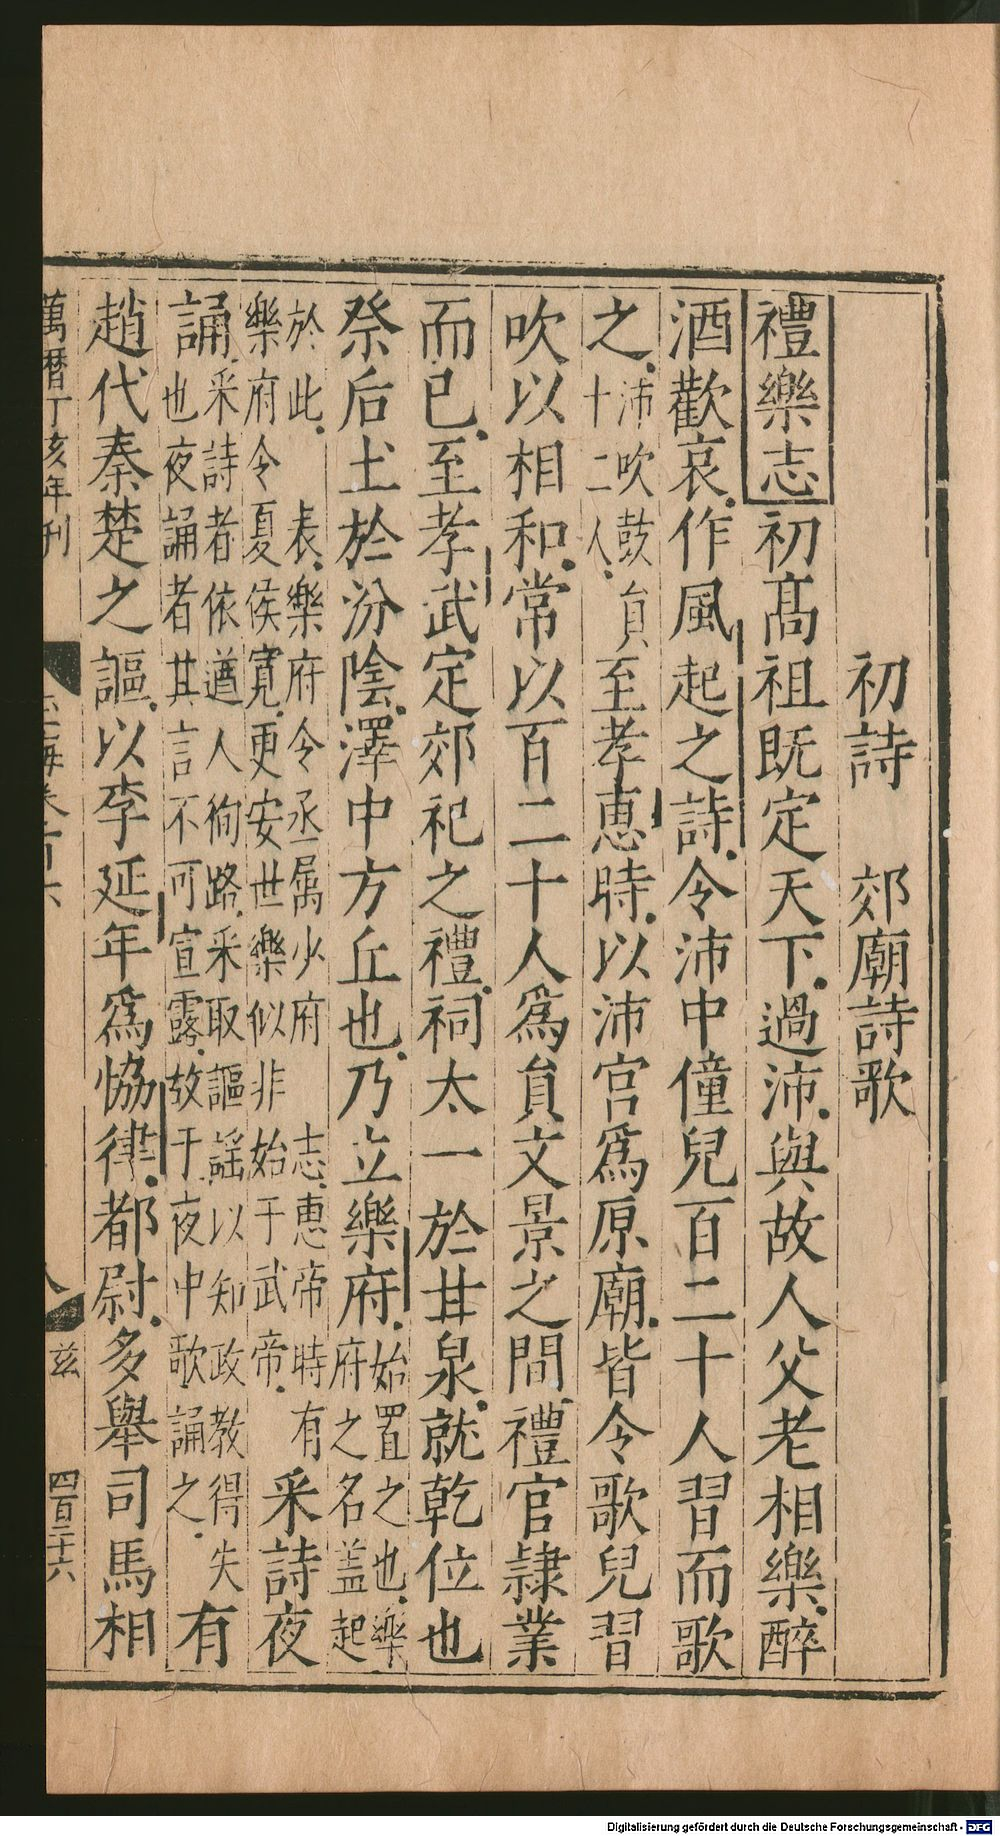 初詩　郊廟詩歌
禮樂志初髙祖既定天下過沛與故人父老相樂醉
酒歡哀作風起之詩令沛中僮兒百二十人習而歌
之沛吹鼓員十二人至孝惠時以沛宮爲原廟皆令歌兒習
吹以相和常以百二十人爲員文景之間禮官隷業
而已至孝武定郊祀之禮祠太一於甘泉就乾位也
祭后土於汾陰澤中方丘也乃立樂府始置之也樂府之名盖起
於此　表樂府令丞属少府　志惠帝時有樂府令夏侯寛更安世樂似非始于武帝采詩夜
誦采詩者依遒人徇路采取謳謡以知政教得失也夜誦者其言不可宣露故于夜中歌誦之有
趙代秦楚之謳以李延年爲恊律都尉多舉司馬相
萬曆丁亥年刊
玉海卷一百六
八
兹
四百二十六
Digitalisierung gefördert durch die Deutsche Forschungsgemeinschaft - DFG